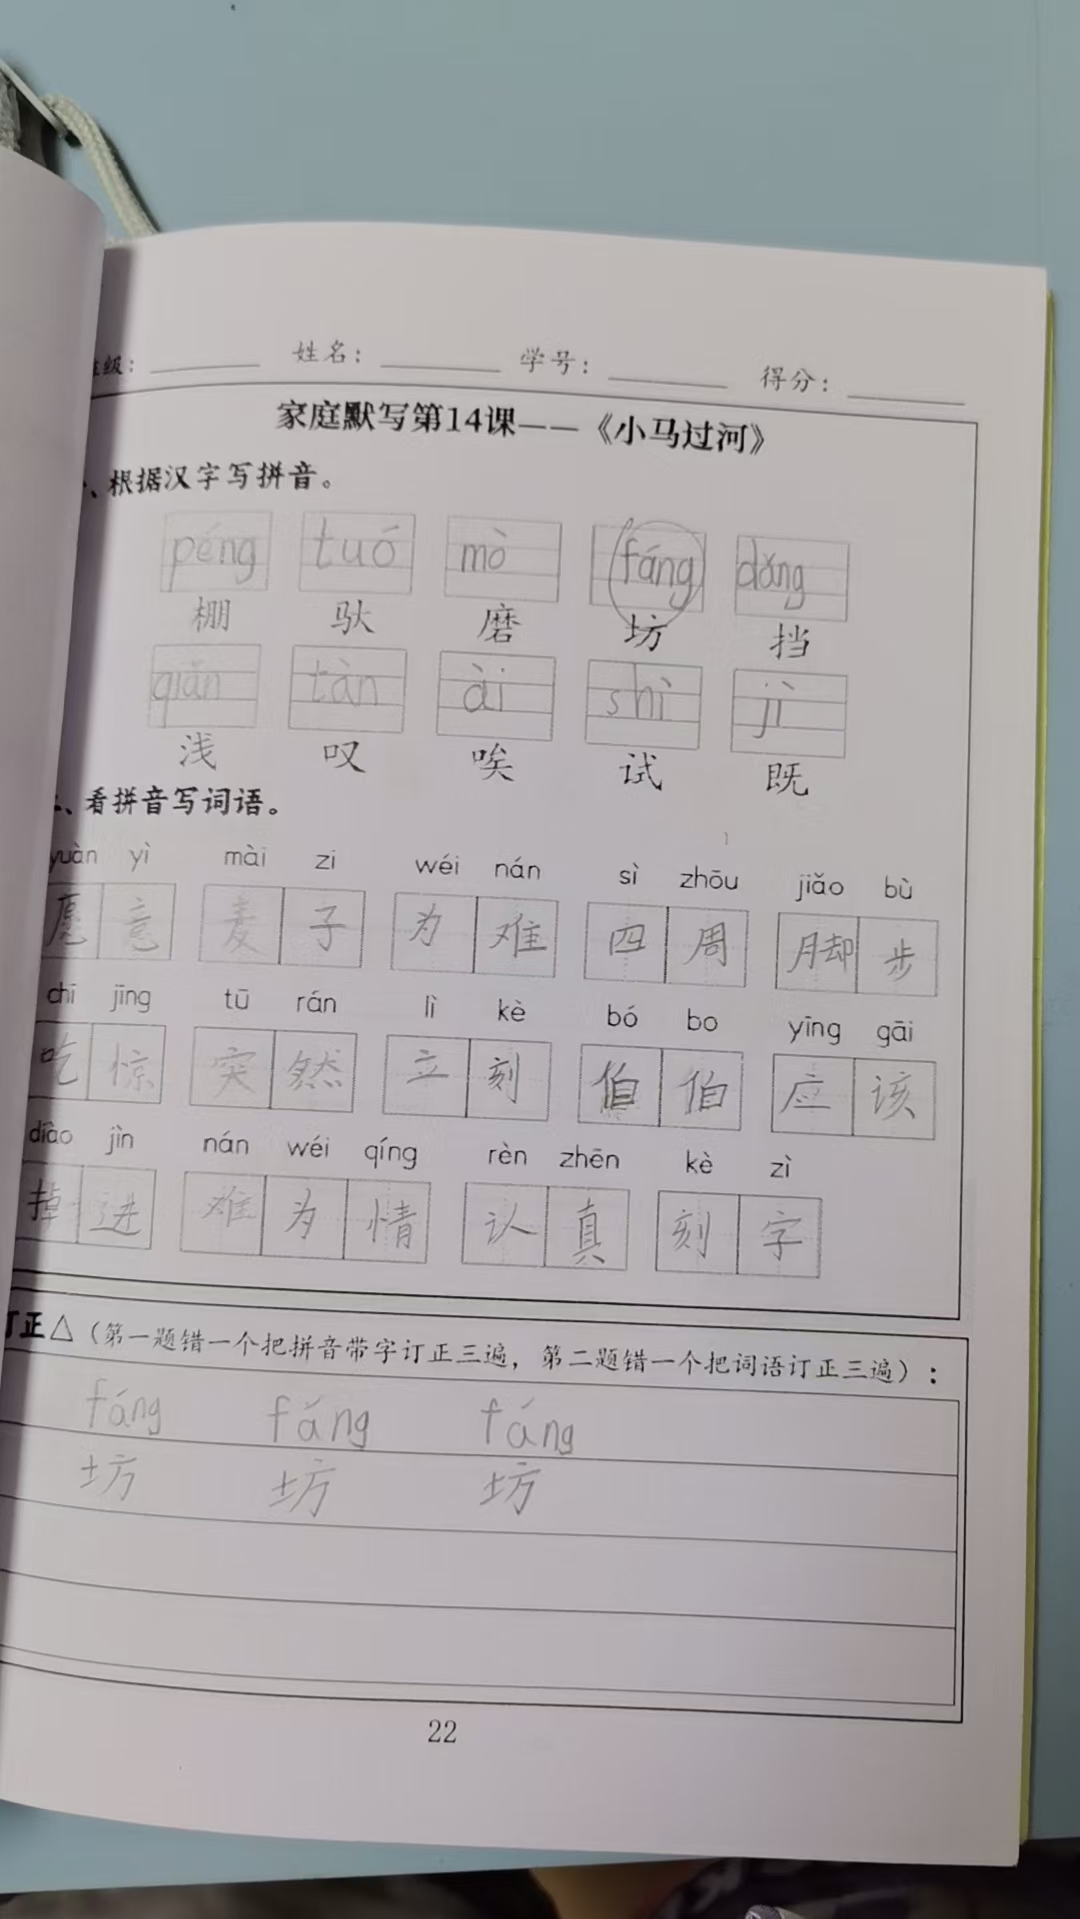 级：______ 姓名：______ 学号：______ 得分：______
家庭默写第14课——《小马过河》
、根据汉字写拼音。
péng tuó mò fáng dǎng
棚 驮 磨 坊 挡
qiǎn tàn ài shì jì
浅 叹 唉 试 既
、看拼音写词语。
yuàn yì mài zi wéi nán sì zhōu jiǎo bù
愿意 麦子 为难 四周 脚步
chī jīng tū rán lì kè bó bo yīng gāi
吃惊 突然 立刻 伯伯 应该
diào jìn nán wéi qíng rèn zhēn kè zì
掉进 难为情 认真 刻字
订正△（第一题错一个把拼音带字订正三遍，第二题错一个把词语订正三遍）：
fáng fáng fáng
坊 坊 坊
22